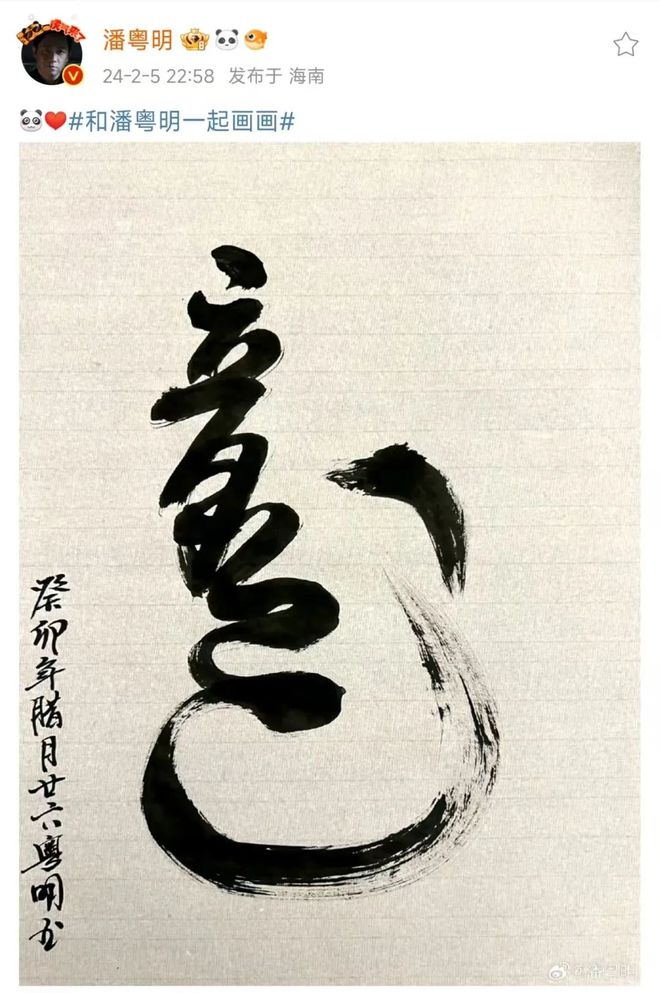 潘粤明
24-2-5 22:58 发布于 海南
#和潘粤明一起画画#
龍
癸卯年腊月廿六粤明书